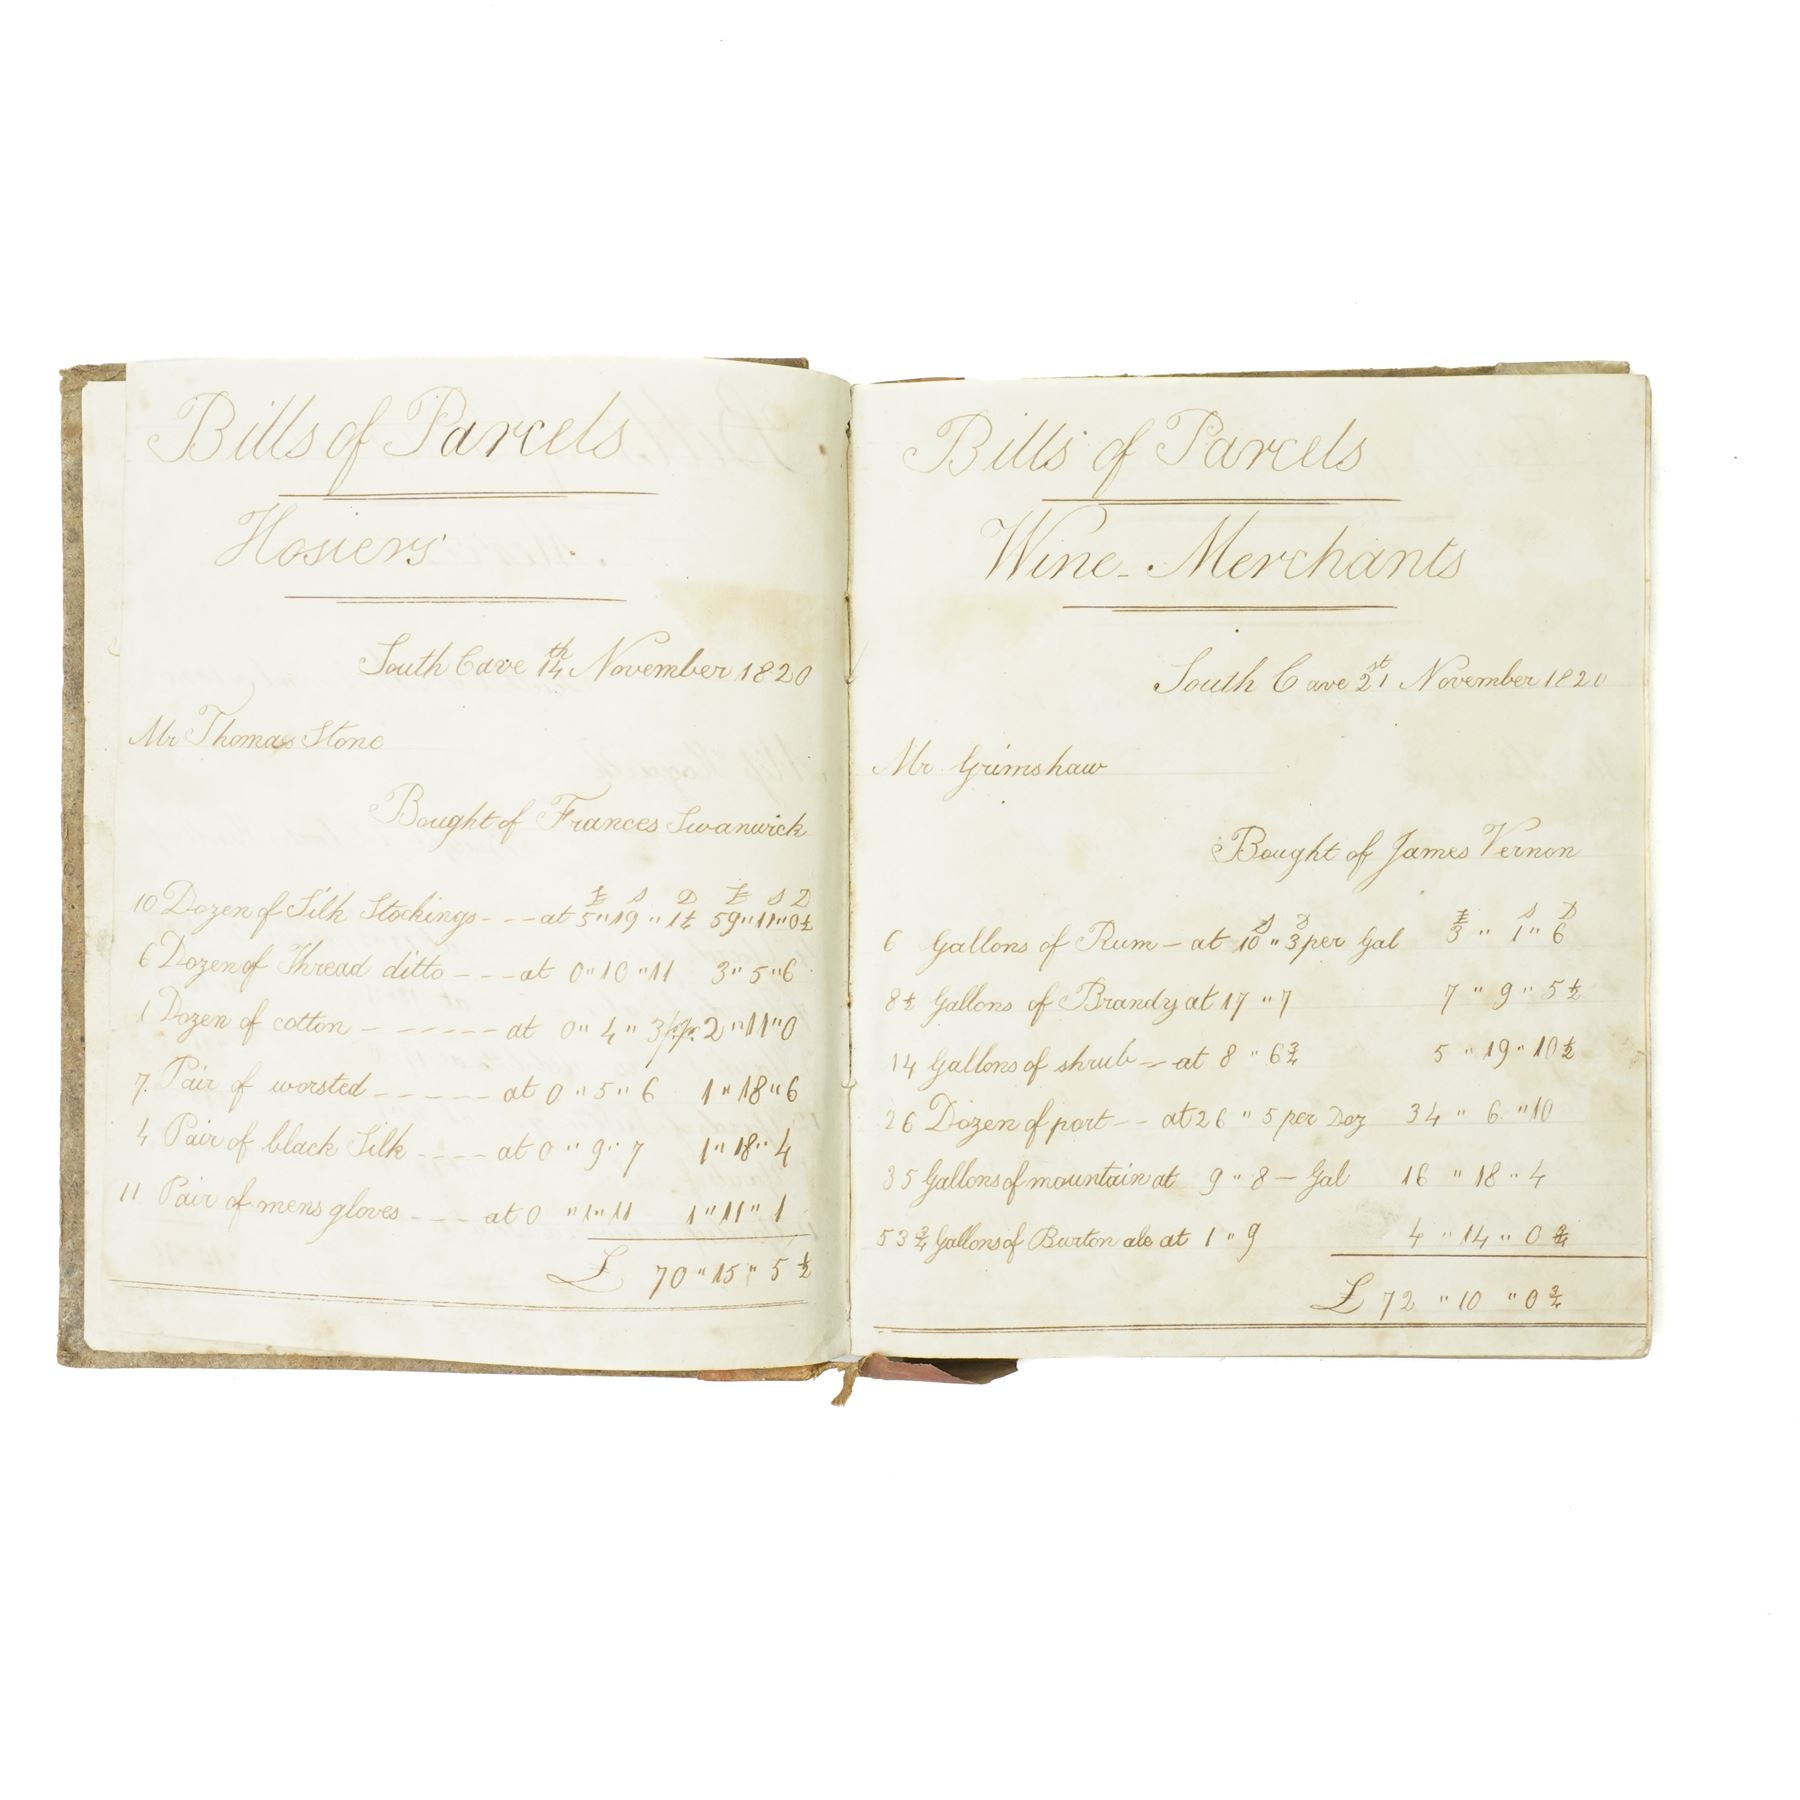 Bills of Parcels
Hosiers
South Cave 14th November 1820
Mr Thomas Stone
Bought of Frances Swanwick
£ S D £ S D
10 Dozen of Silk Stockings - - - at 5 " 19 " 1¼ 59 " 11 " 0½
6 Dozen of Thread ditto - - - at 0 " 10 " 11 3 " 5 " 6
1 Dozen of cotton - - - - - - at 0 " 4 " 3 p.pr. 2 " 11 " 0
7 Pair of worsted - - - - - at 0 " 5 " 6 1 " 18 " 6
4 Pair of black Silk - - - - at 0 " 9 " 7 1 " 18 " 4
11 Pair of mens gloves - - - at 0 " 1 " 11 1 " 11 " 1
£ 70 " 15 " 5½
Bills of Parcels
Wine - Merchants
South Cave 21st November 1820
Mr Grimshaw
Bought of James Vernon
S D £ S D
6 Gallons of Rum - at 10 " 3 per Gal 3 " 1 " 6
8½ Gallons of Brandy at 17 " 7 7 " 9 " 5½
14 Gallons of shrub - at 8 " 6¾ 5 " 19 " 10½
26 Dozen of port - - at 26 " 5 per Doz 34 " 6 " 10
35 Gallons of mountain at 9 " 8 - Gal 16 " 18 " 4
53¾ Gallons of Burton ale at 1 " 9 4 " 14 " 0¾
£ 72 " 10 " 0¾